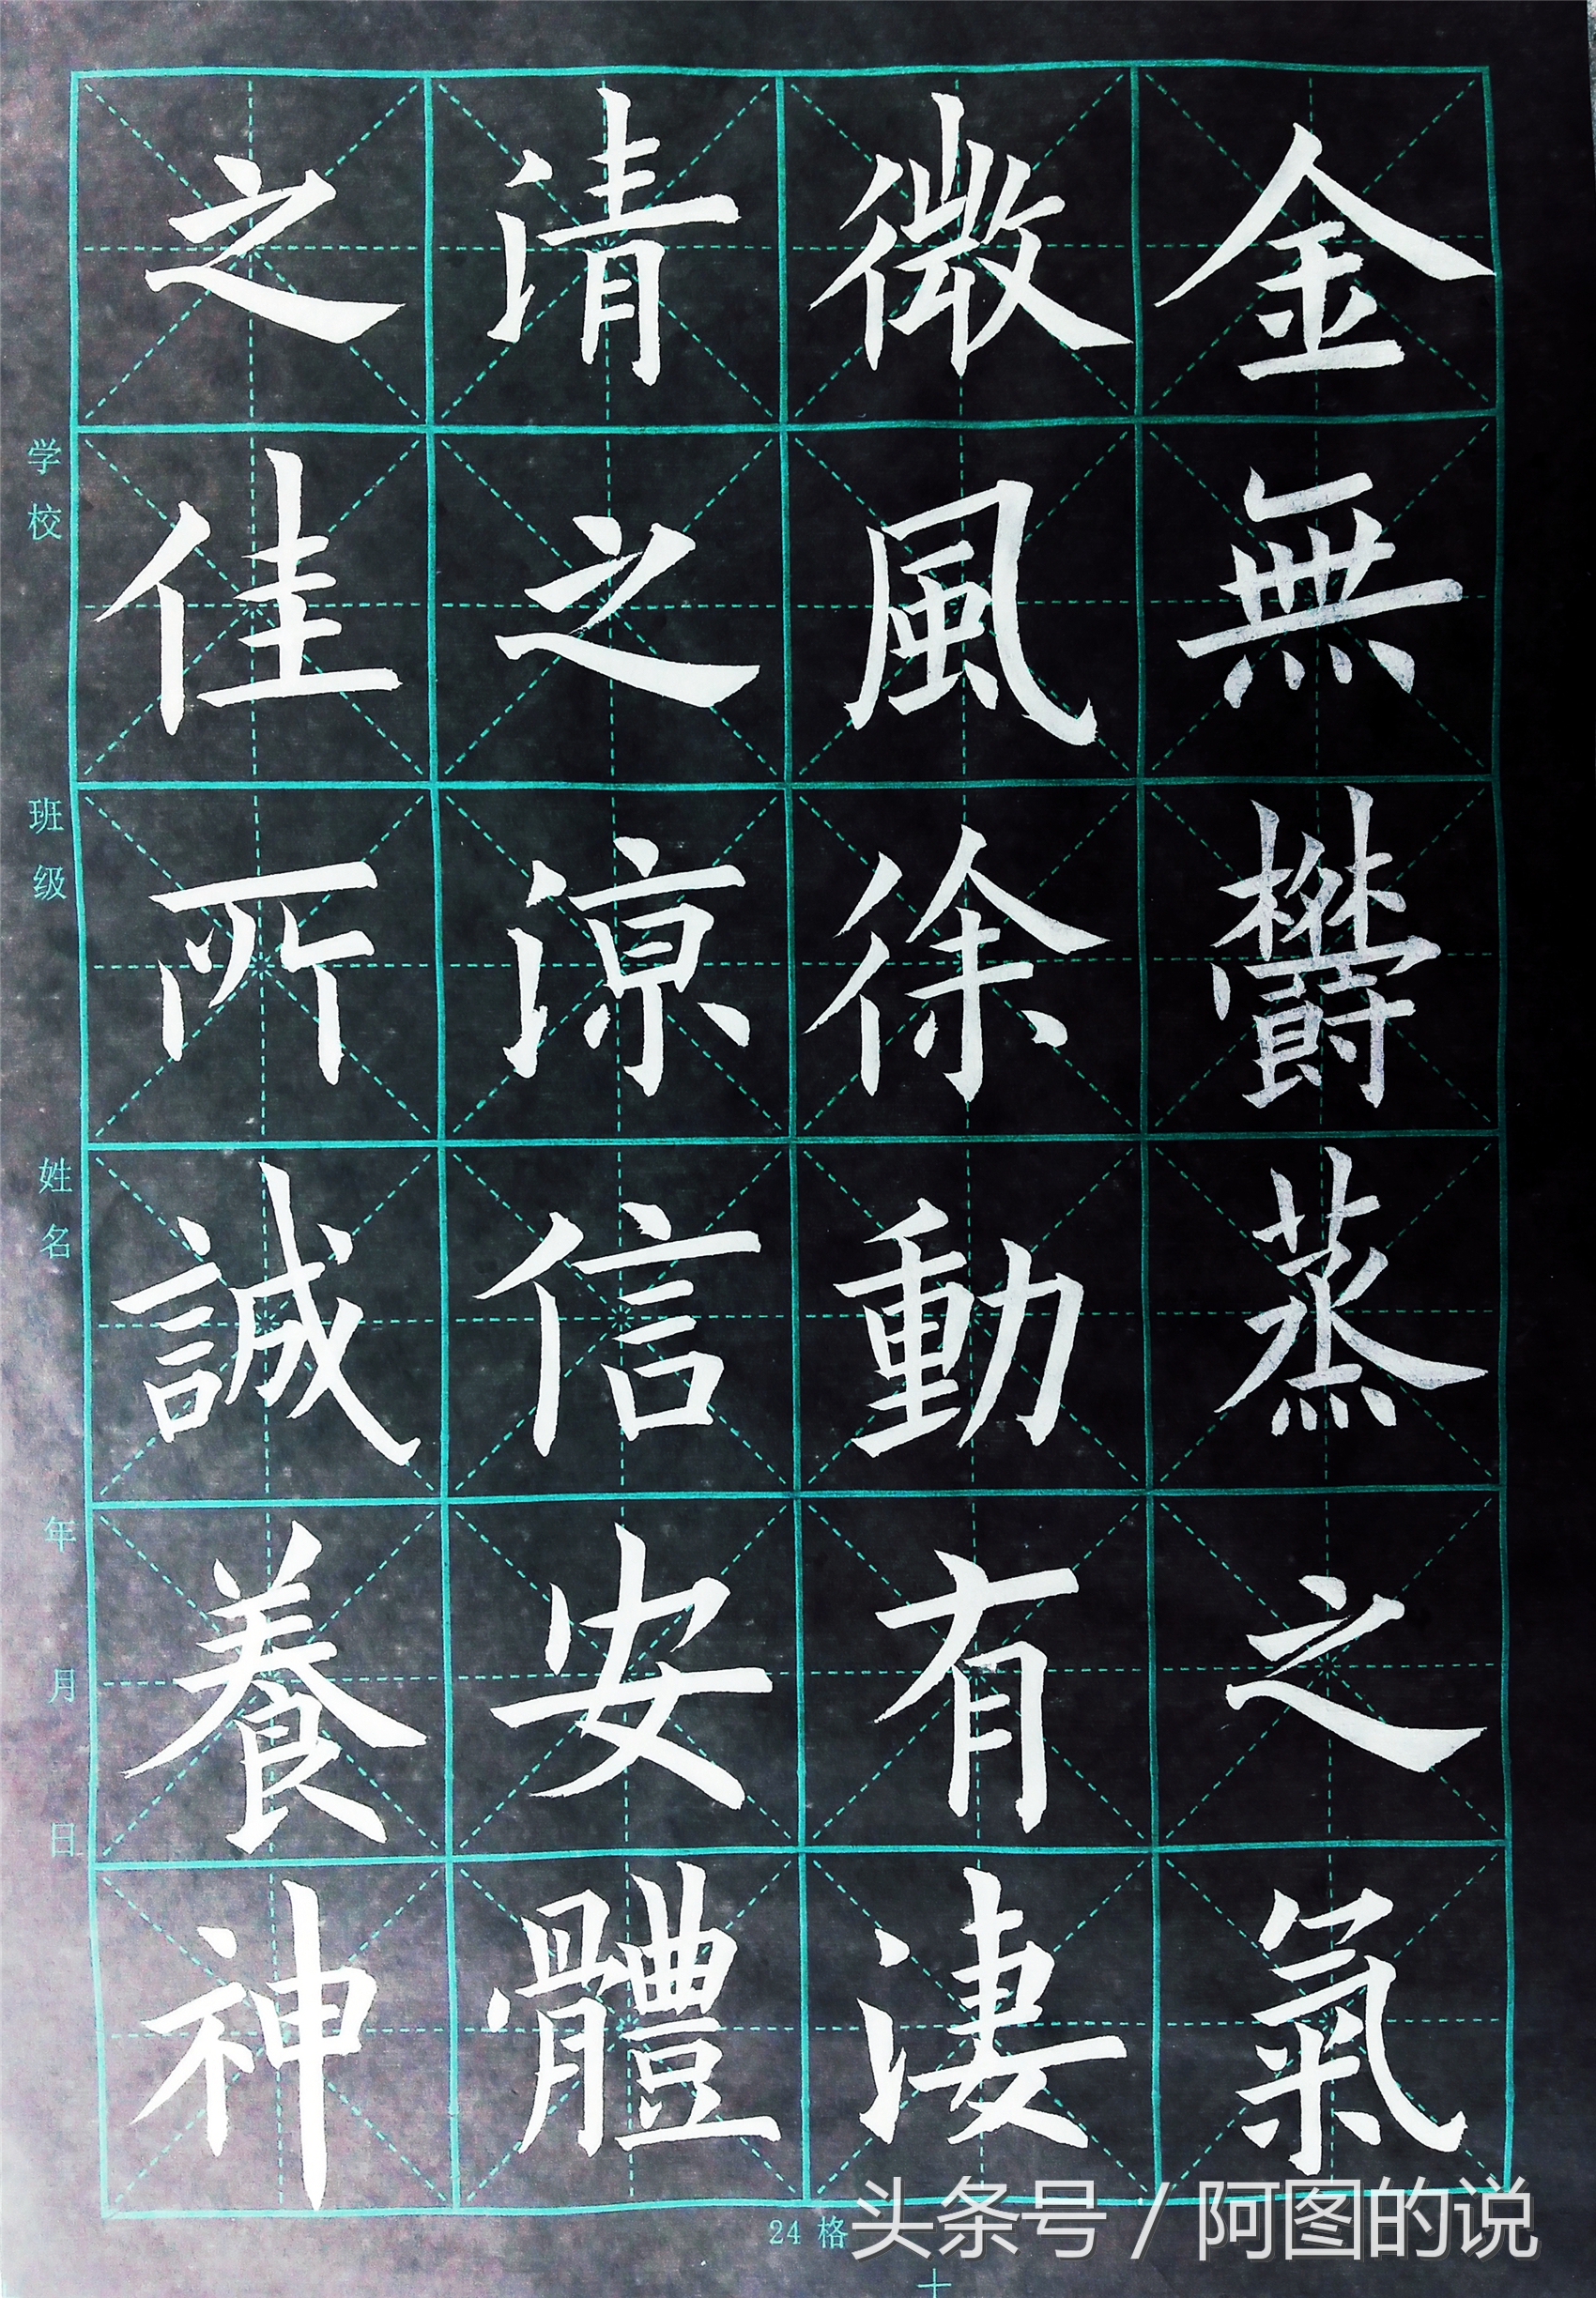 金無欝蒸之氣
微風徐動有淒
清之涼信安體
之佳所誠養神
学校
班级
姓名
年
月
日
24格
十
头条号 / 阿图的说